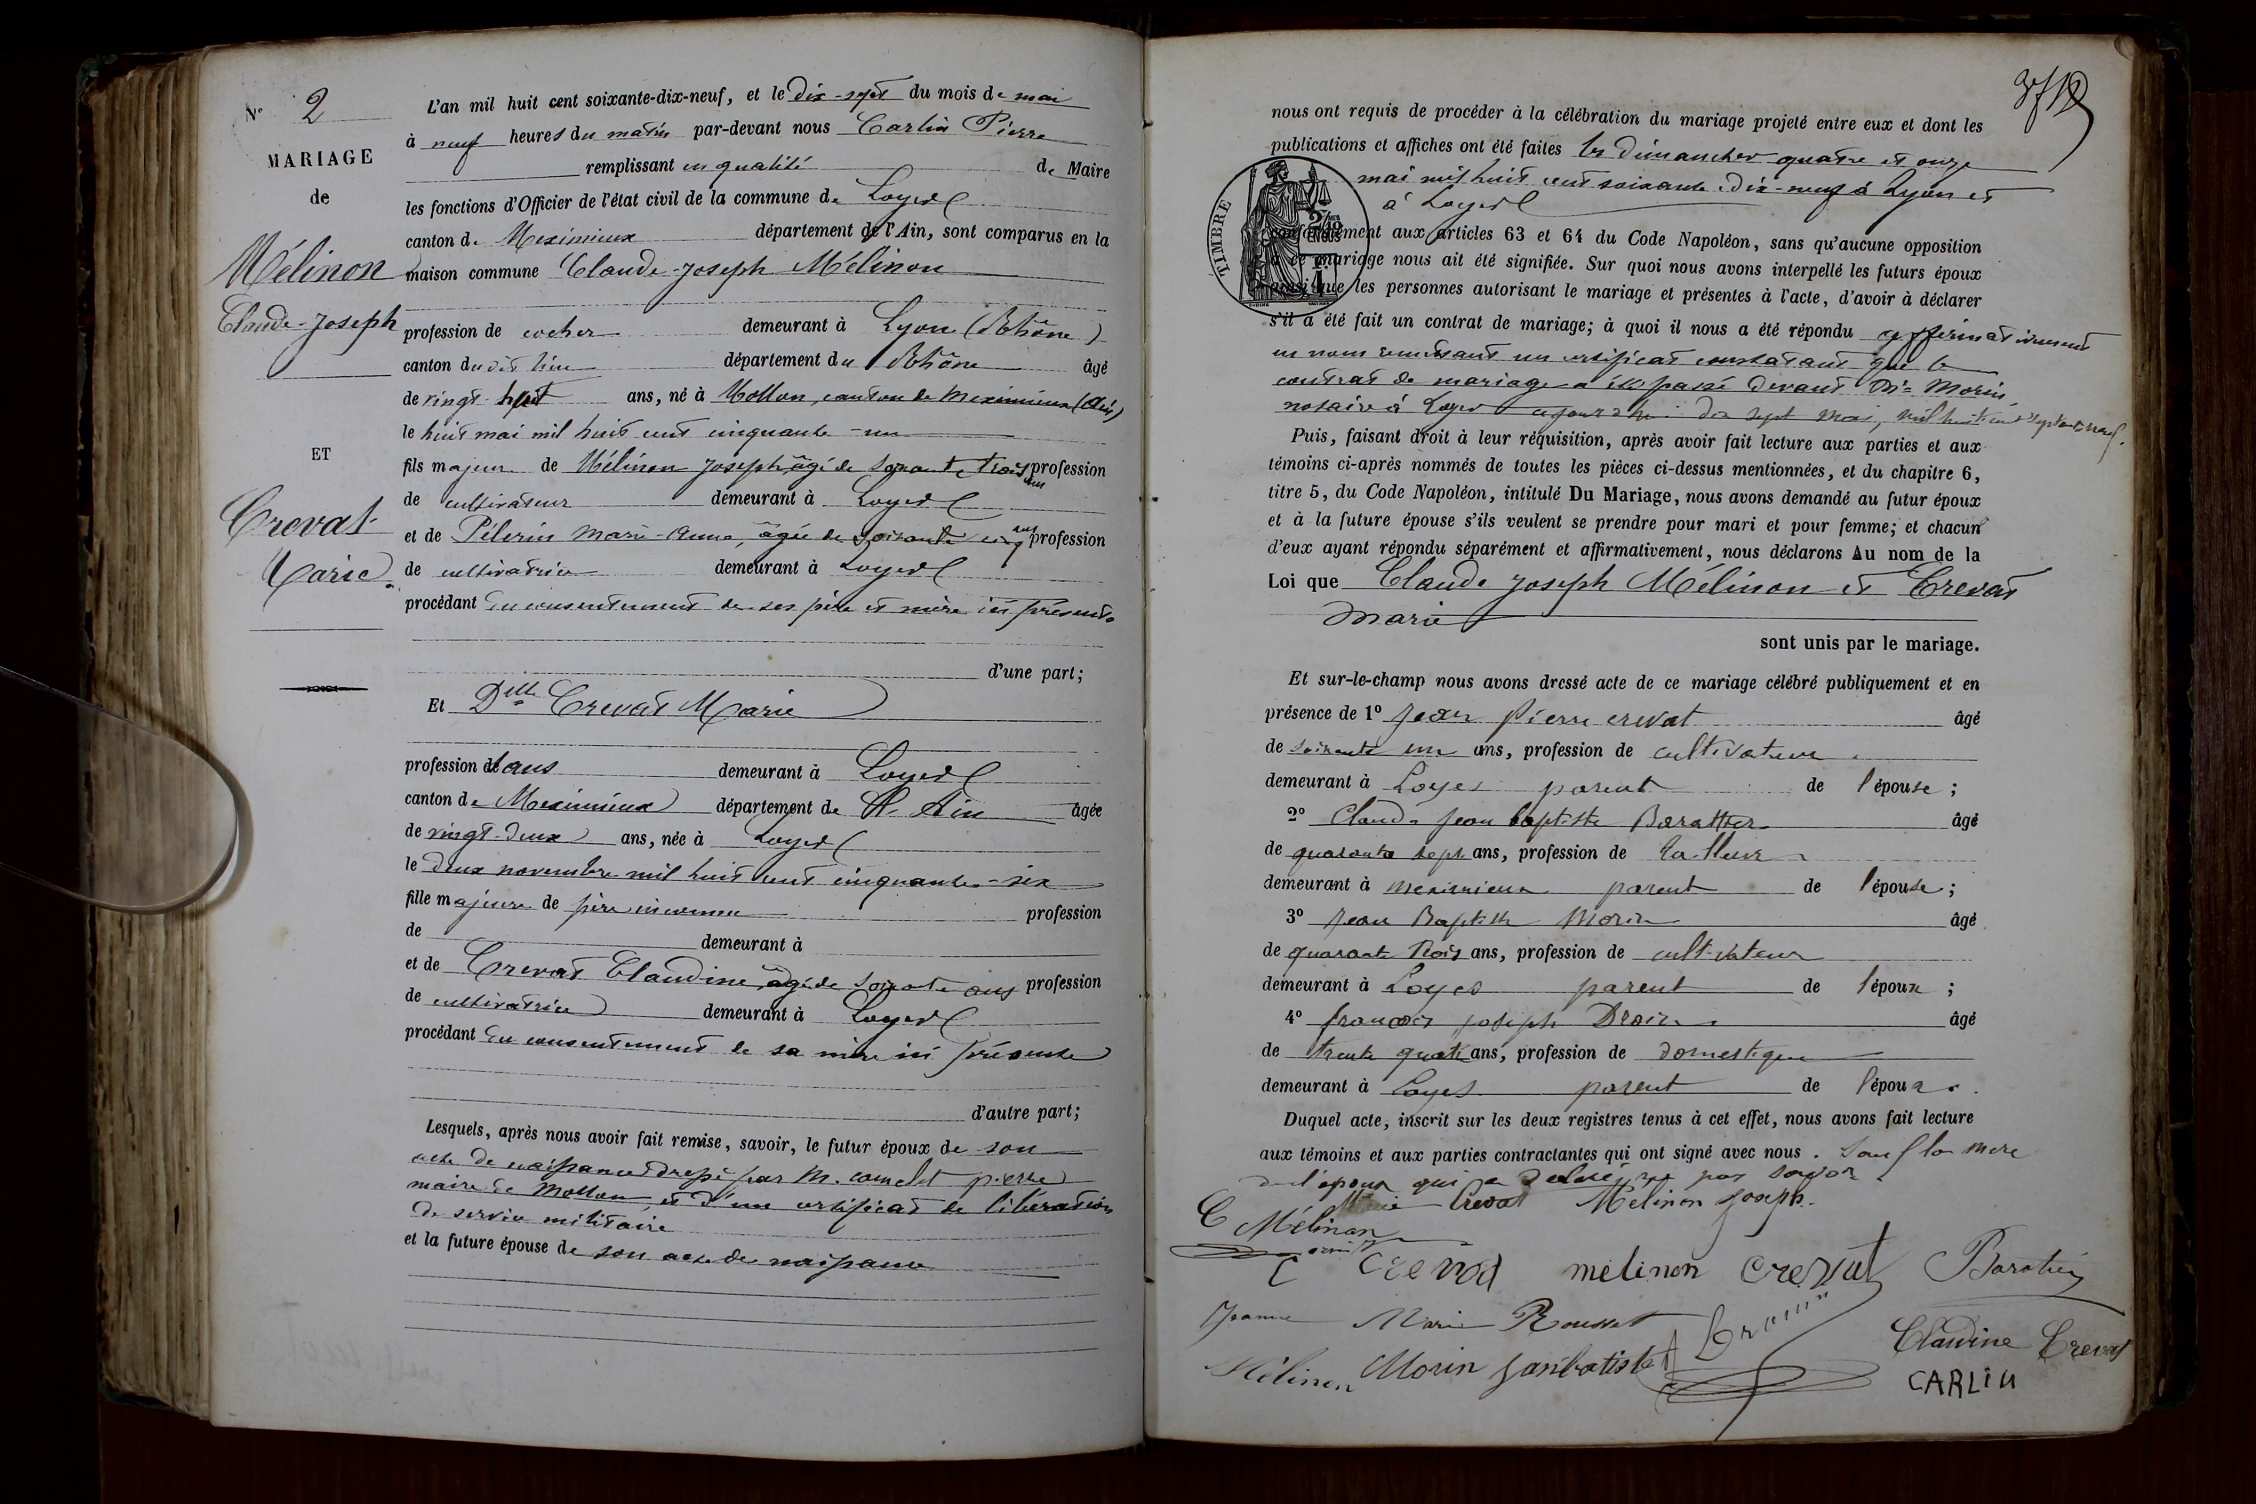 N° 2
MARIAGE
de
Mélinon
Claude-Joseph
ET
Crevat
Marie
L'an mil huit cent soixante-dix-neuf, et le dix-sept du mois de mai
à neuf heures du matin par-devant nous Carlin Pierre
remplissant en qualité de Maire
les fonctions d'Officier de l'état civil de la commune de Loyes
canton de Meximieux département de l'Ain, sont comparus en la
maison commune Claude-Joseph Mélinon
profession de cocher demeurant à Lyon (Rhône)
canton du dit lieu département du Rhône âgé
de vingt-huit ans, né à Mollon, canton de Meximieux (Ain)
le huit mai mil huit cent cinquante-un
fils majeur de Mélinon Joseph, âgé de soixante trois ans profession
de cultivateur demeurant à Loyes
et de Pélerin Marie-Anne, âgée de soixante cinq ans profession
de cultivatrice demeurant à Loyes
procédant du consentement de ses père et mère ici présents
d'une part;
Et Dlle Crevat Marie
profession de sans demeurant à Loyes
canton de Meximieux département de l'Ain âgée
de vingt-deux ans, née à Loyes
le deux novembre mil huit cent cinquante-six
fille majeure de père inconnu profession
de demeurant à
et de Crevat Claudine, âgée de soixante ans profession
de cultivatrice demeurant à Loyes
procédant du consentement de sa mère ici présente
d'autre part;
Lesquels, après nous avoir fait remise, savoir, le futur époux de son
acte de naissance dressé par M. pierre
maire de Mollon, et d'un certificat de libération
de service militaire
et la future épouse de son acte de naissance
nous ont requis de procéder à la célébration du mariage projeté entre eux et dont les
publications et affiches ont été faites les dimanches quatre et onze
mai mil huit cent soixante-dix-neuf à Lyon et
à Loyes
TIMBRE
conformément aux articles 63 et 64 du Code Napoléon, sans qu'aucune opposition
à ce mariage nous ait été signifiée. Sur quoi nous avons interpellé les futurs époux
ainsi que les personnes autorisant le mariage et présentes à l'acte, d'avoir à déclarer
s'il a été fait un contrat de mariage; à quoi il nous a été répondu affirmativement
en nous remettant un certificat constatant que le
contrat de mariage a été passé devant Me Morin
notaire à Loyes aujourd'hui dix sept mai, mil huit cent septante neuf.
Puis, faisant droit à leur réquisition, après avoir fait lecture aux parties et aux
témoins ci-après nommés de toutes les pièces ci-dessus mentionnées, et du chapitre 6,
titre 5, du Code Napoléon, intitulé Du Mariage, nous avons demandé au futur époux
et à la future épouse s'ils veulent se prendre pour mari et pour femme; et chacun
d'eux ayant répondu séparément et affirmativement, nous déclarons Au nom de la
Loi que Claude Joseph Mélinon et Crevat
Marie
sont unis par le mariage.
Et sur-le-champ nous avons dressé acte de ce mariage célébré publiquement et en
présence de 1° Jean Pierre crevat âgé
de soixante un ans, profession de cultivateur
demeurant à Loyes parent de l'épouse;
2° Claude Jean baptiste Barathier âgé
de quarante sept ans, profession de
demeurant à meximieux parent de l'épouse;
3° Jean Baptiste Morin âgé
de quarante trois ans, profession de cultivateur
demeurant à Loyes parent de l'époux;
4° françois joseph Droin âgé
de trente quatre ans, profession de domestique
demeurant à Loyes parent de l'époux.
Duquel acte, inscrit sur les deux registres tenus à cet effet, nous avons fait lecture
aux témoins et aux parties contractantes qui ont signé avec nous. Sauf la mere
de l'époux qui a déclaré ne pas savoir
C Mélinon Marie Crevat Mélinon Joseph.
C crevat mélinon crevat
Jeanne Marie Rousset
Claudine Crevat
Mélinon Morin janbatiste
CARLIN